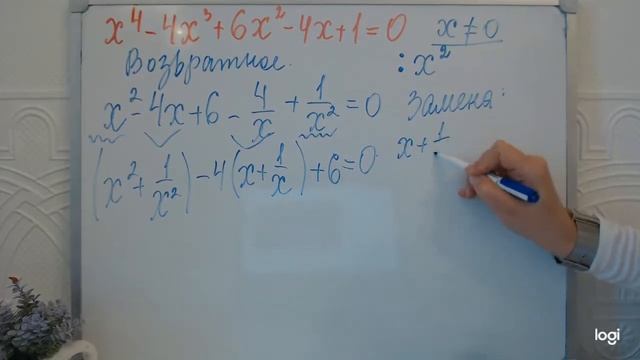 x⁴ - 4x³ + 6x² - 4x + 1 = 0
x ≠ 0
Возвратное.
: x²
x² - 4x + 6 - 4/x + 1/x² = 0
Замена:
(x² + 1/x²) - 4(x + 1/x) + 6 = 0
x + 1/
logi